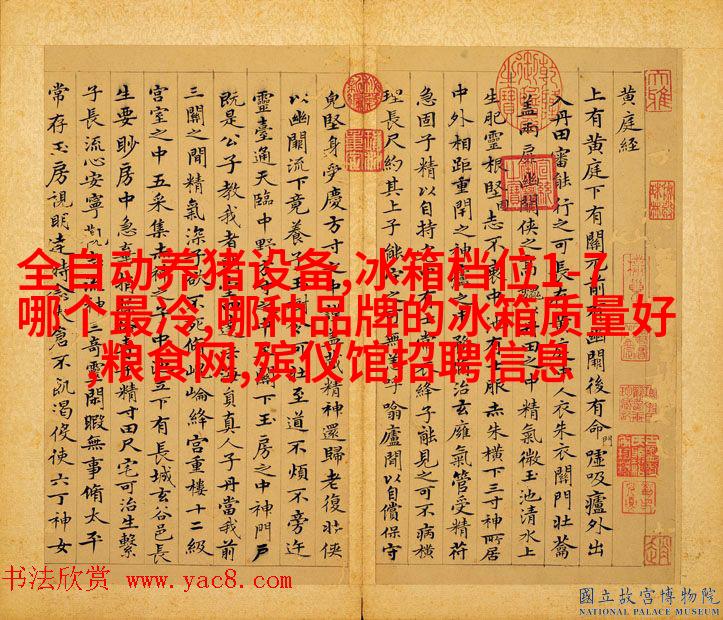 黄庭經
上有黄庭下有關元前有幽關後有命門噓吸廬外出
入丹田審能行之可長存黄庭中人衣朱衣關門壯籥
蓋兩扉幽關侠之高巍丹田之中精氣微玉池清水上
生肥靈根堅志不衰中池有士服赤朱横下三寸神所居
中外相距重閉之神廬之中脩治玄廱氣管受精符
急固子精以自持有士常衣絳子能見之可不病横
理長尺約其上子能守之可無恙呼噏廬閒以自償保守
皃堅身受慶方寸之中謹精神還歸老復壯侠
以幽關流下竟養子玉樹可杖至道不煩不旁迕
靈臺通天臨中野方寸之中關下玉房之中神門戶
既是公子教我者明堂海員真人子丹當我前
三關之閒精氣深子欲不死脩崐崘絳宫重樓十二級
宫室之中五采集赤神之子中池立下有長城玄谷邑長
生要眇房中急棄捐子精寸田尺宅可治生繫
子長流心安寧流神三奇靈閒暇無事脩太平
常存玉房視明達時念太倉不飢渴役使六丁神女
全自动养猪设备,冰箱档位1-7
哪个最冷 哪种品牌的冰箱质量好
,粮食网,殡仪馆招聘信息
书法欣赏 www.yac8.com
國立故宮博物院
NATIONAL PALACE MUSEUM